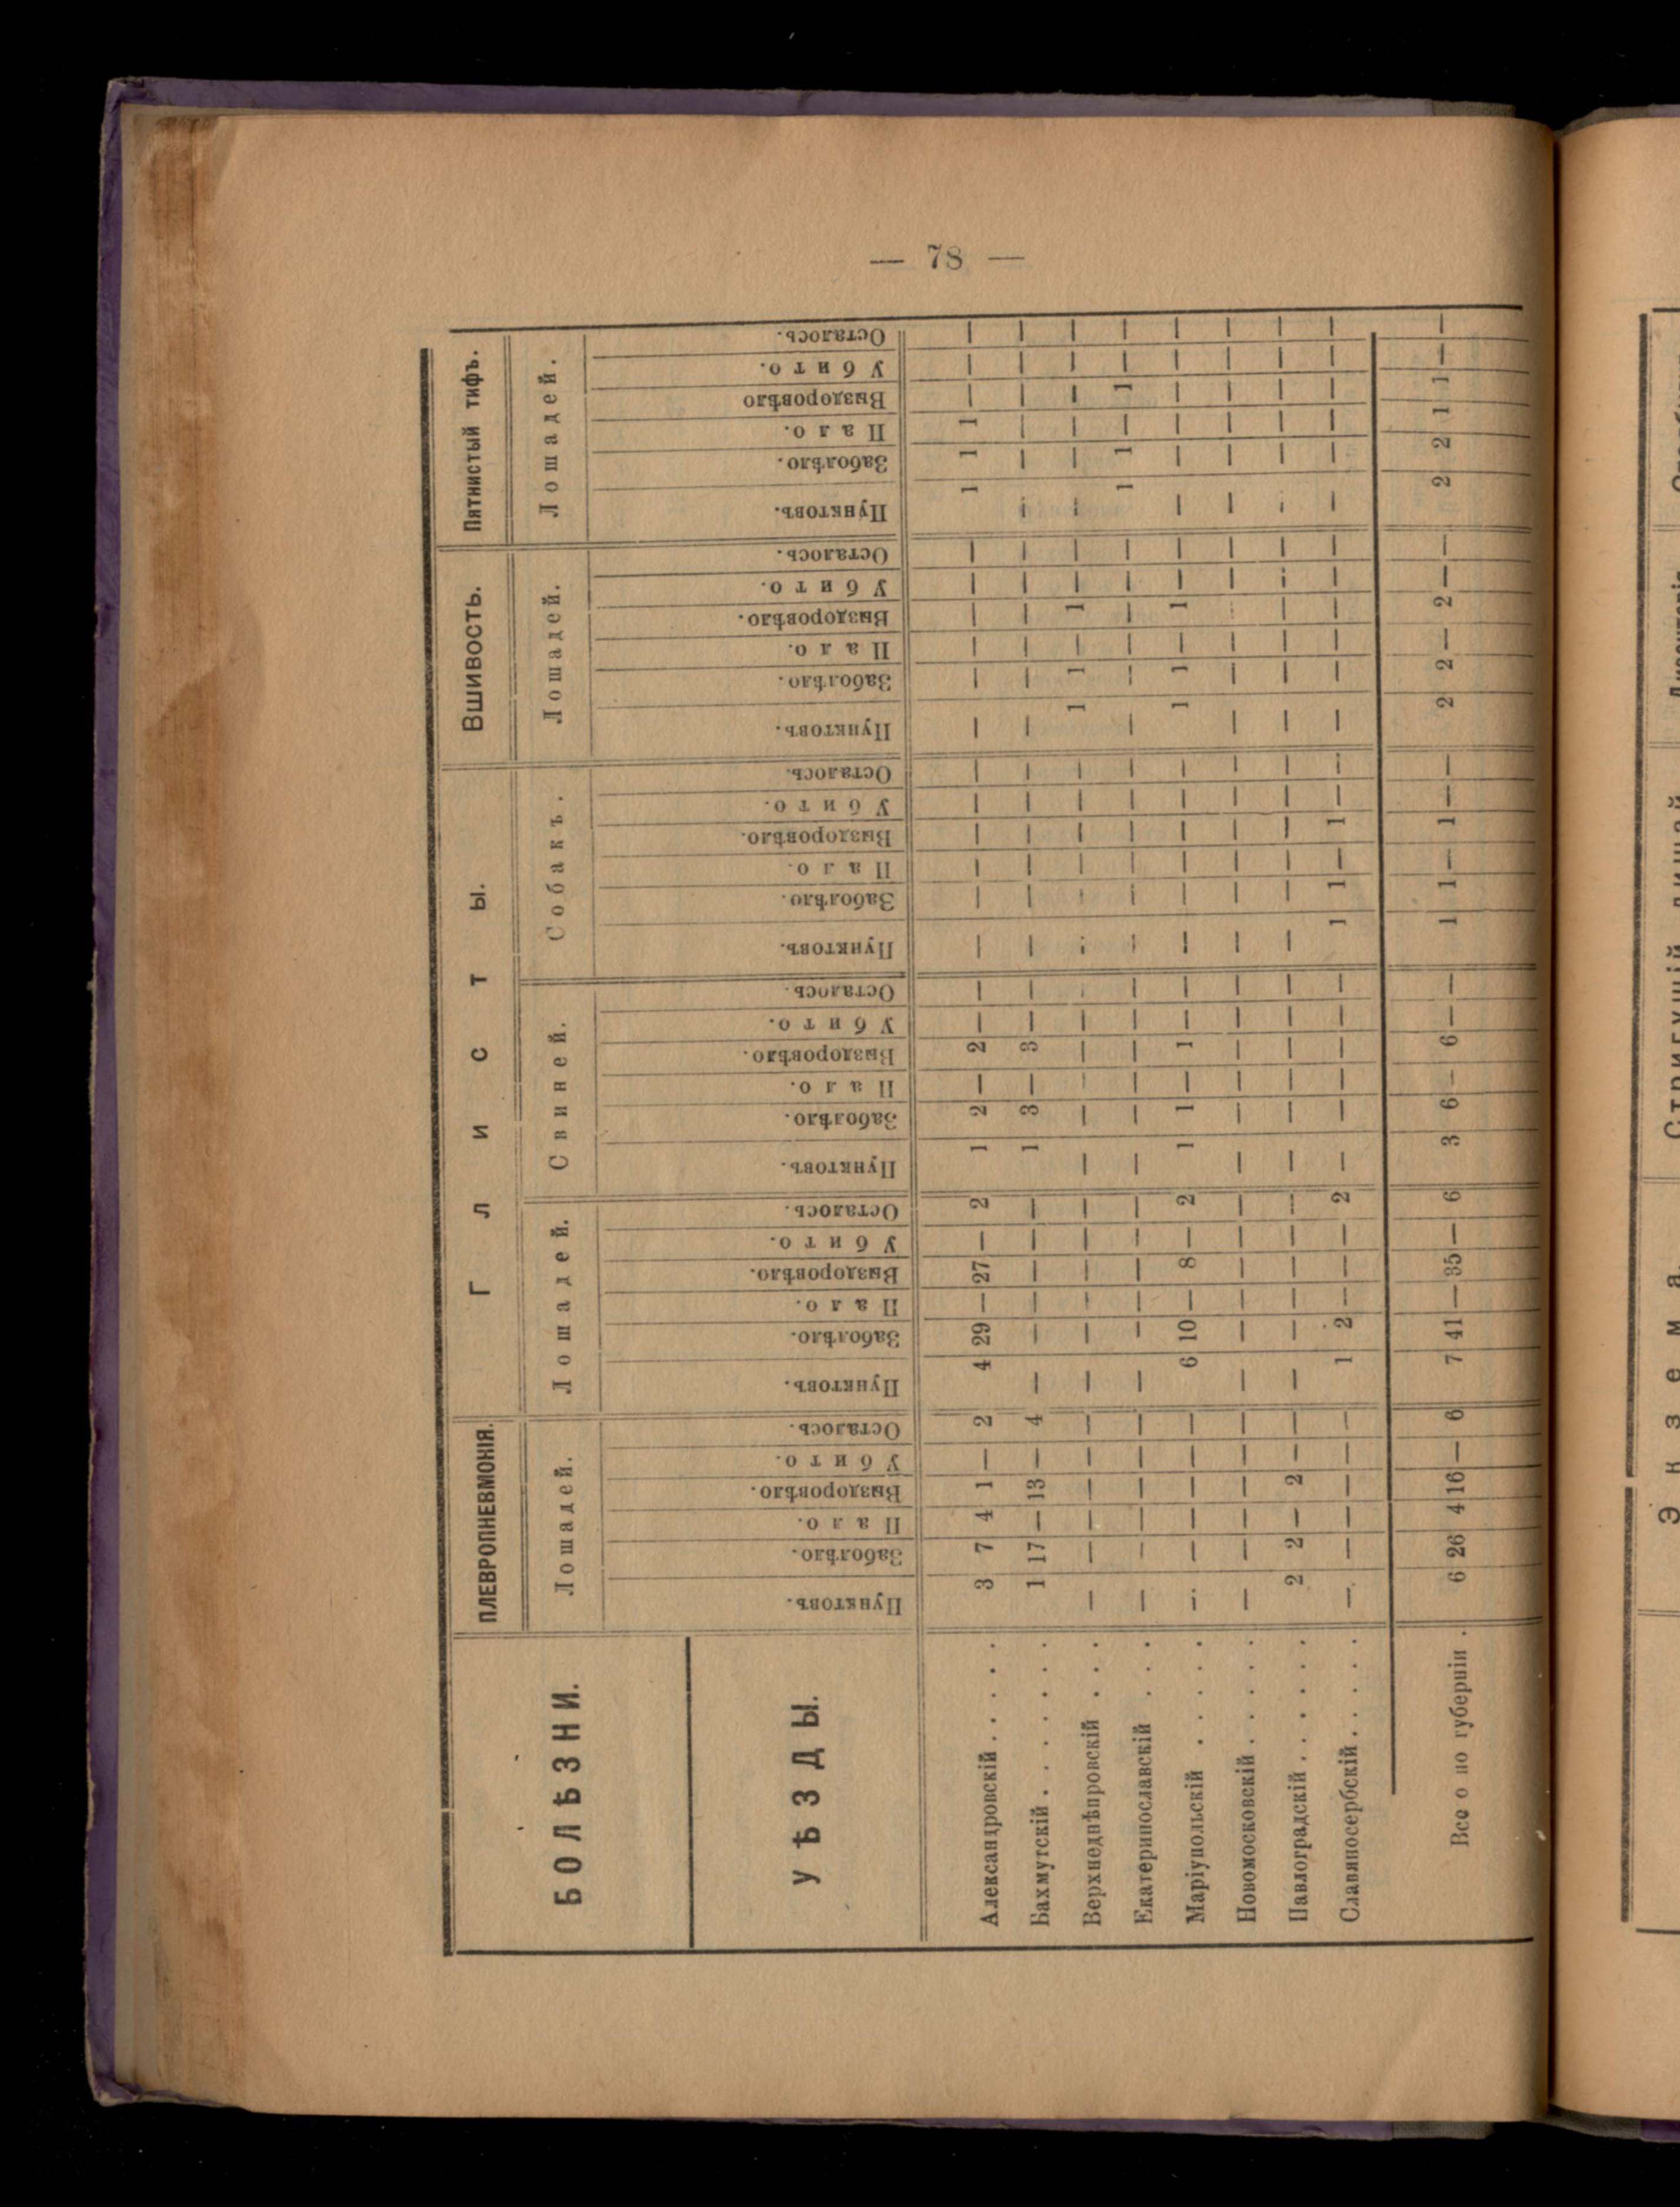 — 78 —
БОЛѢЗНИ. ПЛЕВРОПНЕВМОНІЯ. ГЛИСТЫ. ВШИВОСТЬ. Пятнистый тифъ.
Лошадей. Лошадей. Свиней. Собакъ. Лошадей. Лошадей.
УѢЗДЫ. Пунктовъ. Заболѣло. Пало. Выздоровѣло. Убито. Осталось. Пунктовъ. Заболѣло. Пало. Выздоровѣло. Убито. Осталось. Пунктовъ. Заболѣло. Пало. Выздоровѣло. Убито. Осталось. Пунктовъ. Заболѣло. Пало. Выздоровѣло. Убито. Осталось. Пунктовъ. Заболѣло. Пало. Выздоровѣло. Убито. Осталось. Пунктовъ. Заболѣло. Пало. Выздоровѣло Убито. Осталось.
Александровскій . . . . . 3 7 4 1 — 2 4 29 — 27 — 2 1 2 — 2 — — — — — — — — — — — — — — 1 1 1 — — —
Бахмутскій . . . . . . 1 17 — 13 — 4 — — — — — — 1 3 — 3 — — — — — — — — — — — — — — — — — — — —
Верхнеднѣпровскій . . . — — — — — — — — — — — — — — — — — — — — — — — — 1 1 — 1 — — — — — — — —
Екатеринославскій . . . — — — — — — — — — — — — — — — — — — — — — — — — — — — — — — 1 1 — 1 — —
Маріупольскій . . . . . — — — — — — 6 10 — 8 — 2 1 1 — 1 — — — — — — — — 1 1 — 1 — — — — — — — —
Новомосковскій . . . . . — — — — — — — — — — — — — — — — — — — — — — — — — — — — — — — — — — — —
Павлоградскій . . . . . . 2 2 — 2 — — — — — — — — — — — — — — — — — — — — — — — — — — — — — — — —
Славяносербскій . . . . . — — — — — — 1 2 — — — 2 — — — — — — 1 1 — 1 — — — — — — — — — — — — — —
Все о по губерніи . 6 26 4 16 — 6 7 41 — 35 — 6 3 6 — 6 — — 1 1 — 1 — — 2 2 — 2 — — 2 2 1 1 — —
Экзема.